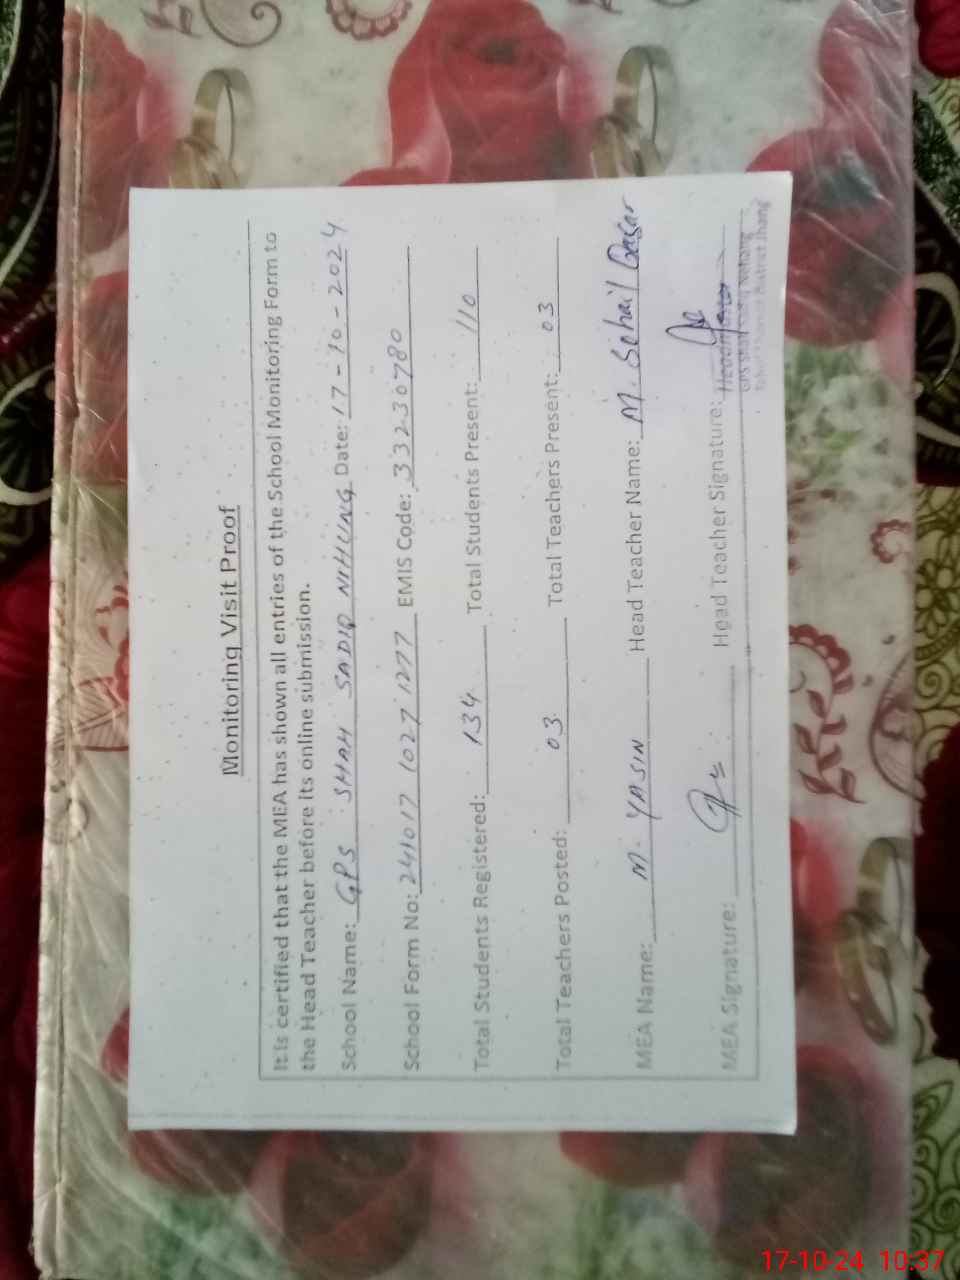 Monitoring Visit Proof
It is certified that the MEA has shown all entries of the School Monitoring Form to
the Head Teacher before its online submission.
School Name: GPS SHAH SADIQ NIHUNG Date: 17-10-2024
School Form No: 241017 10271277 EMIS Code: 33230780
Total Students Registered: 134 Total Students Present: 110
Total Teachers Posted: 03 Total Teachers Present: 03
MEA Name: M. YASIN Head Teacher Name: M. Sohail Qasar
MEA Signature: Head Teacher Signature:
GPS Shah Sadiq Nehang
District Jhang
17-10-24 10:37